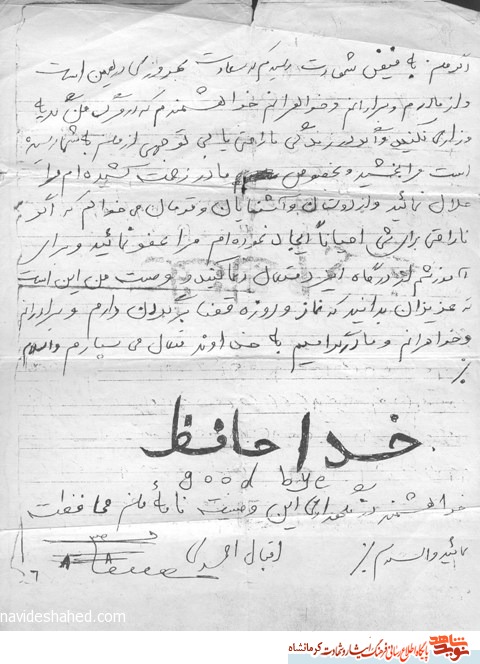 اگر من به فیض شهادت رسیدم که سعادت بهروزی در همین است
و از مادرم و برادرانم و خواهرانم خواهشمندم که در مرگ من گریه
و زاری نکنید و اگر در زندگی ناراحتی یا بی توجهی از من به شما رسیده
است مرا ببخشید و بخصوص مادر زحمت کشیده ام مرا
حلال نمائید و از دوستان و آشنایان و قومان می خواهم که اگر
ناراحتی برای شما احیاناً ایجاد نموده ام مرا عفو نمائید و برای
آمرزشم از درگاه ایزد متعال دعا کنید و وصیت من این است
که عزیزان بدانید که نماز و روزه قضا بگردن دارم و برادرانم
و خواهرانم و مادر گرامیم به خداوند متعال می سپارم والسلام
خدا حافظ
good bye
خواهشمند در نگهداری این وصیت نامه من محافظت
نمائید والسلام اقبال احمدی
navideshahed.com
نوید شاهد پایگاه اطلاع رسانی فرهنگ ایثار و شهادت کرمانشاه